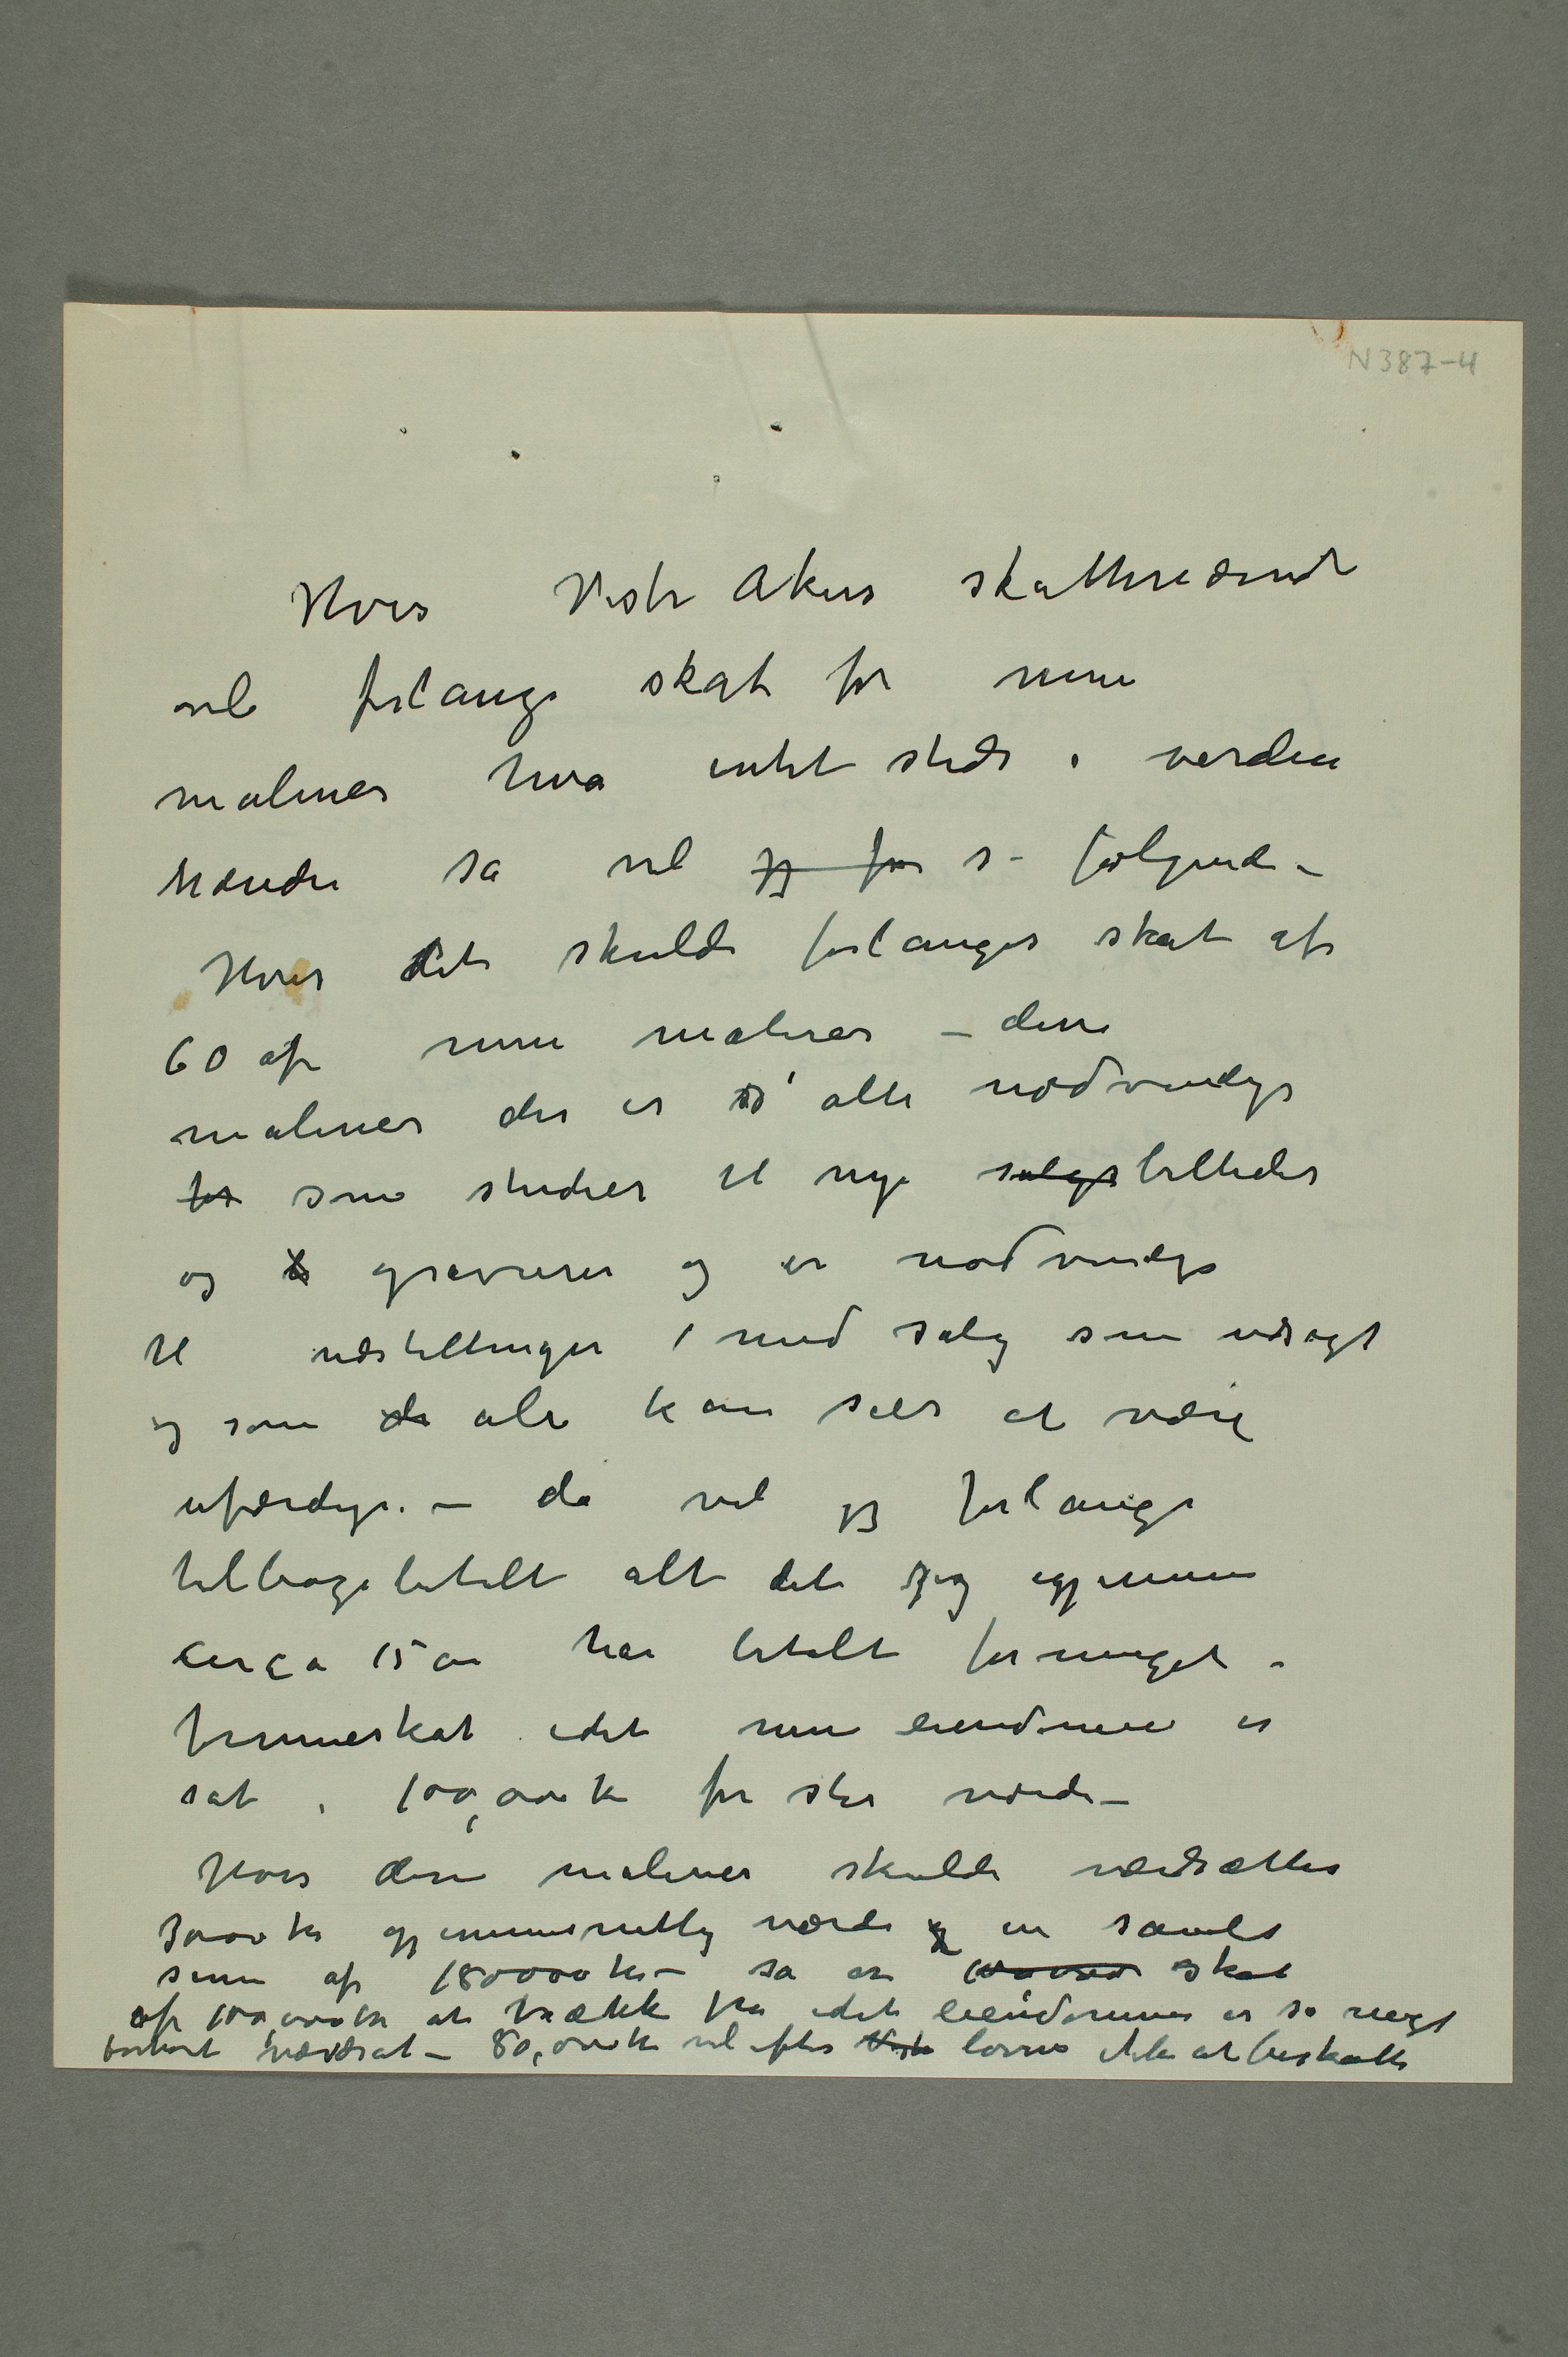 N 387-4
Hvis Vestre Akers skattevæsende
vil forlange skat for mine
malerier hva intet steds i verden
hænder så vil jeg for s – følgende –
Hvis det skulde forlanges skat af
60 af mine malerier – disse
malerier der er alle nødvendige
for som studier til nye salgsbilleder
og gravurer og er nødvendige
til udstillinger / med salg som udsagt
og som de alle kan sees at være
ufærdige. – da vil jeg forlange
tilbagebetalt alt det jeg igjennem
circa 15 år har betalt for meget i
formueskat idet mine eiendomme er
sat i 100,000 kr for stor værdi –
Hvis disse malerier skulde værdsættes
3000 kr gjennemsnittlig værdi og en samlet
sum af 180000 kr – så er skat
af 100,000 kr at trække fra idet eiendommene er så meget
forhøit værdsat – 80,000 kr vil efter loven ikke at beskatte